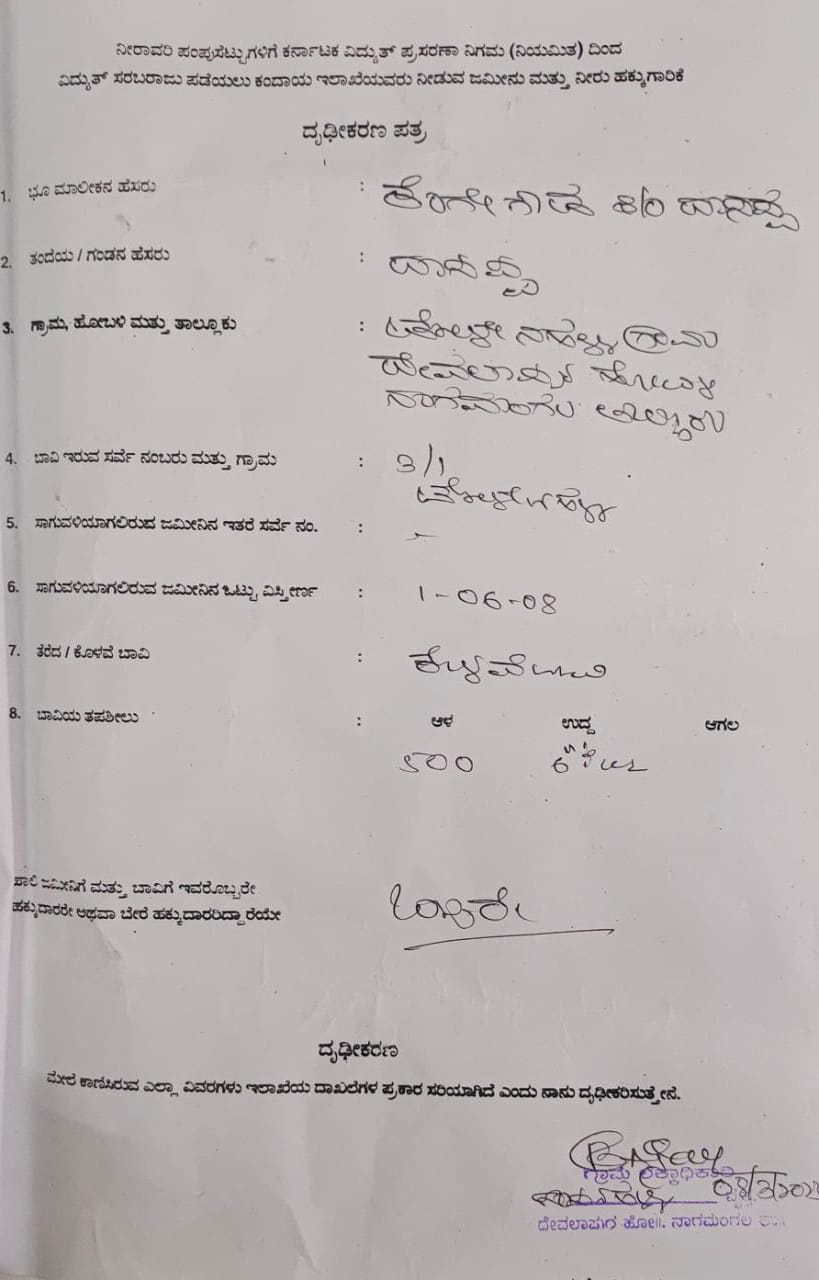 ನೀರಾವರಿ ಪಂಪುಸೆಟ್ಟುಗಳಿಗೆ ಕರ್ನಾಟಕ ವಿದ್ಯುತ್ ಪ್ರಸರಣಾ ನಿಗಮ (ನಿಯಮಿತ) ದಿಂದ
ವಿದ್ಯುತ್ ಸರಬರಾಜು ಪಡೆಯಲು ಕಂದಾಯ ಇಲಾಖೆಯವರು ನೀಡುವ ಜಮೀನು ಮತ್ತು ನೀರು ಹಕ್ಕುಗಾರಿಕೆ
ದೃಢೀಕರಣ ಪತ್ರ
1. ಭೂ ಮಾಲೀಕನ ಹೆಸರು :
2. ತಂದೆಯ / ಗಂಡನ ಹೆಸರು :
3. ಗ್ರಾಮ, ಹೋಬಳಿ ಮತ್ತು ತಾಲ್ಲೂಕು : ಗ್ರಾಮ
ದೇವಲಾಪುರ ಹೋಬಳಿ
ನಾಗಮಂಗಲ ತಾಲ್ಲೂಕು
4. ಬಾವಿ ಇರುವ ಸರ್ವೆ ನಂಬರು ಮತ್ತು ಗ್ರಾಮ : 3/1
5. ಸಾಗುವಳಿಯಾಗಲಿರುವ ಜಮೀನಿನ ಇತರೆ ಸರ್ವೆ ನಂ. : -
6. ಸಾಗುವಳಿಯಾಗಲಿರುವ ಜಮೀನಿನ ಒಟ್ಟು ವಿಸ್ತೀರ್ಣ : 1-06-08
7. ತೆರೆದ / ಕೊಳವೆ ಬಾವಿ : ಕೊಳವೆ ಬಾವಿ
8. ಬಾವಿಯ ತಪಶೀಲು : ಆಳ ಉದ್ದ ಅಗಲ
500 6"
ಖಾಲಿ ಜಮೀನಿಗೆ ಮತ್ತು ಬಾವಿಗೆ ಇವರೊಬ್ಬರೇ
ಹಕ್ಕುದಾರರೇ ಅಥವಾ ಬೇರೆ ಹಕ್ಕುದಾರರಿದ್ದಾರೆಯೇ ಒಬ್ಬರೇ
ದೃಢೀಕರಣ
ಮೇಲೆ ಕಾಣಿಸಿರುವ ಎಲ್ಲಾ ವಿವರಗಳು ಇಲಾಖೆಯ ದಾಖಲೆಗಳ ಪ್ರಕಾರ ಸರಿಯಾಗಿದೆ ಎಂದು ನಾನು ದೃಢೀಕರಿಸುತ್ತೇನೆ.
ಗ್ರಾಮ
ದೇವಲಾಪುರ ಹೋ||. ನಾಗಮಂಗಲ